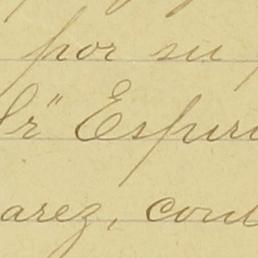 por su
Sr" Espiri
arez, cont